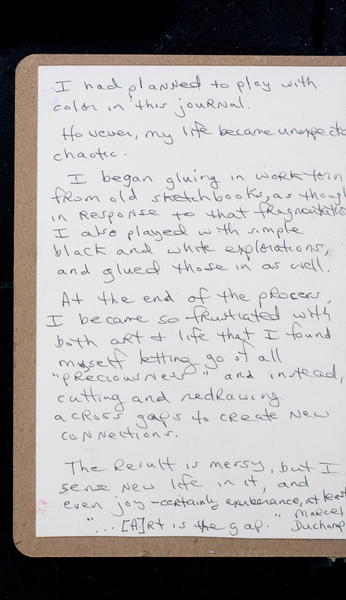 I had planned to play with
color in this journal.
However, my life became unexpecte
chaotic.
I began gluing in work torn
from old sketchbooks, as though
in response to that fragmentation
I also played with simple
black and white explorations,
and glued those in as well.
At the end of the process,
I became so frustrated with
both art & life that I found
myself letting go of all
"preciousness" and instead,
cutting and redrawing
across gaps to create new
connections.
The result is messy, but I
sense new life in it, and
even joy - certainly exuberance, at least
"...[A]rt is the gap." Marcel
Duchamp